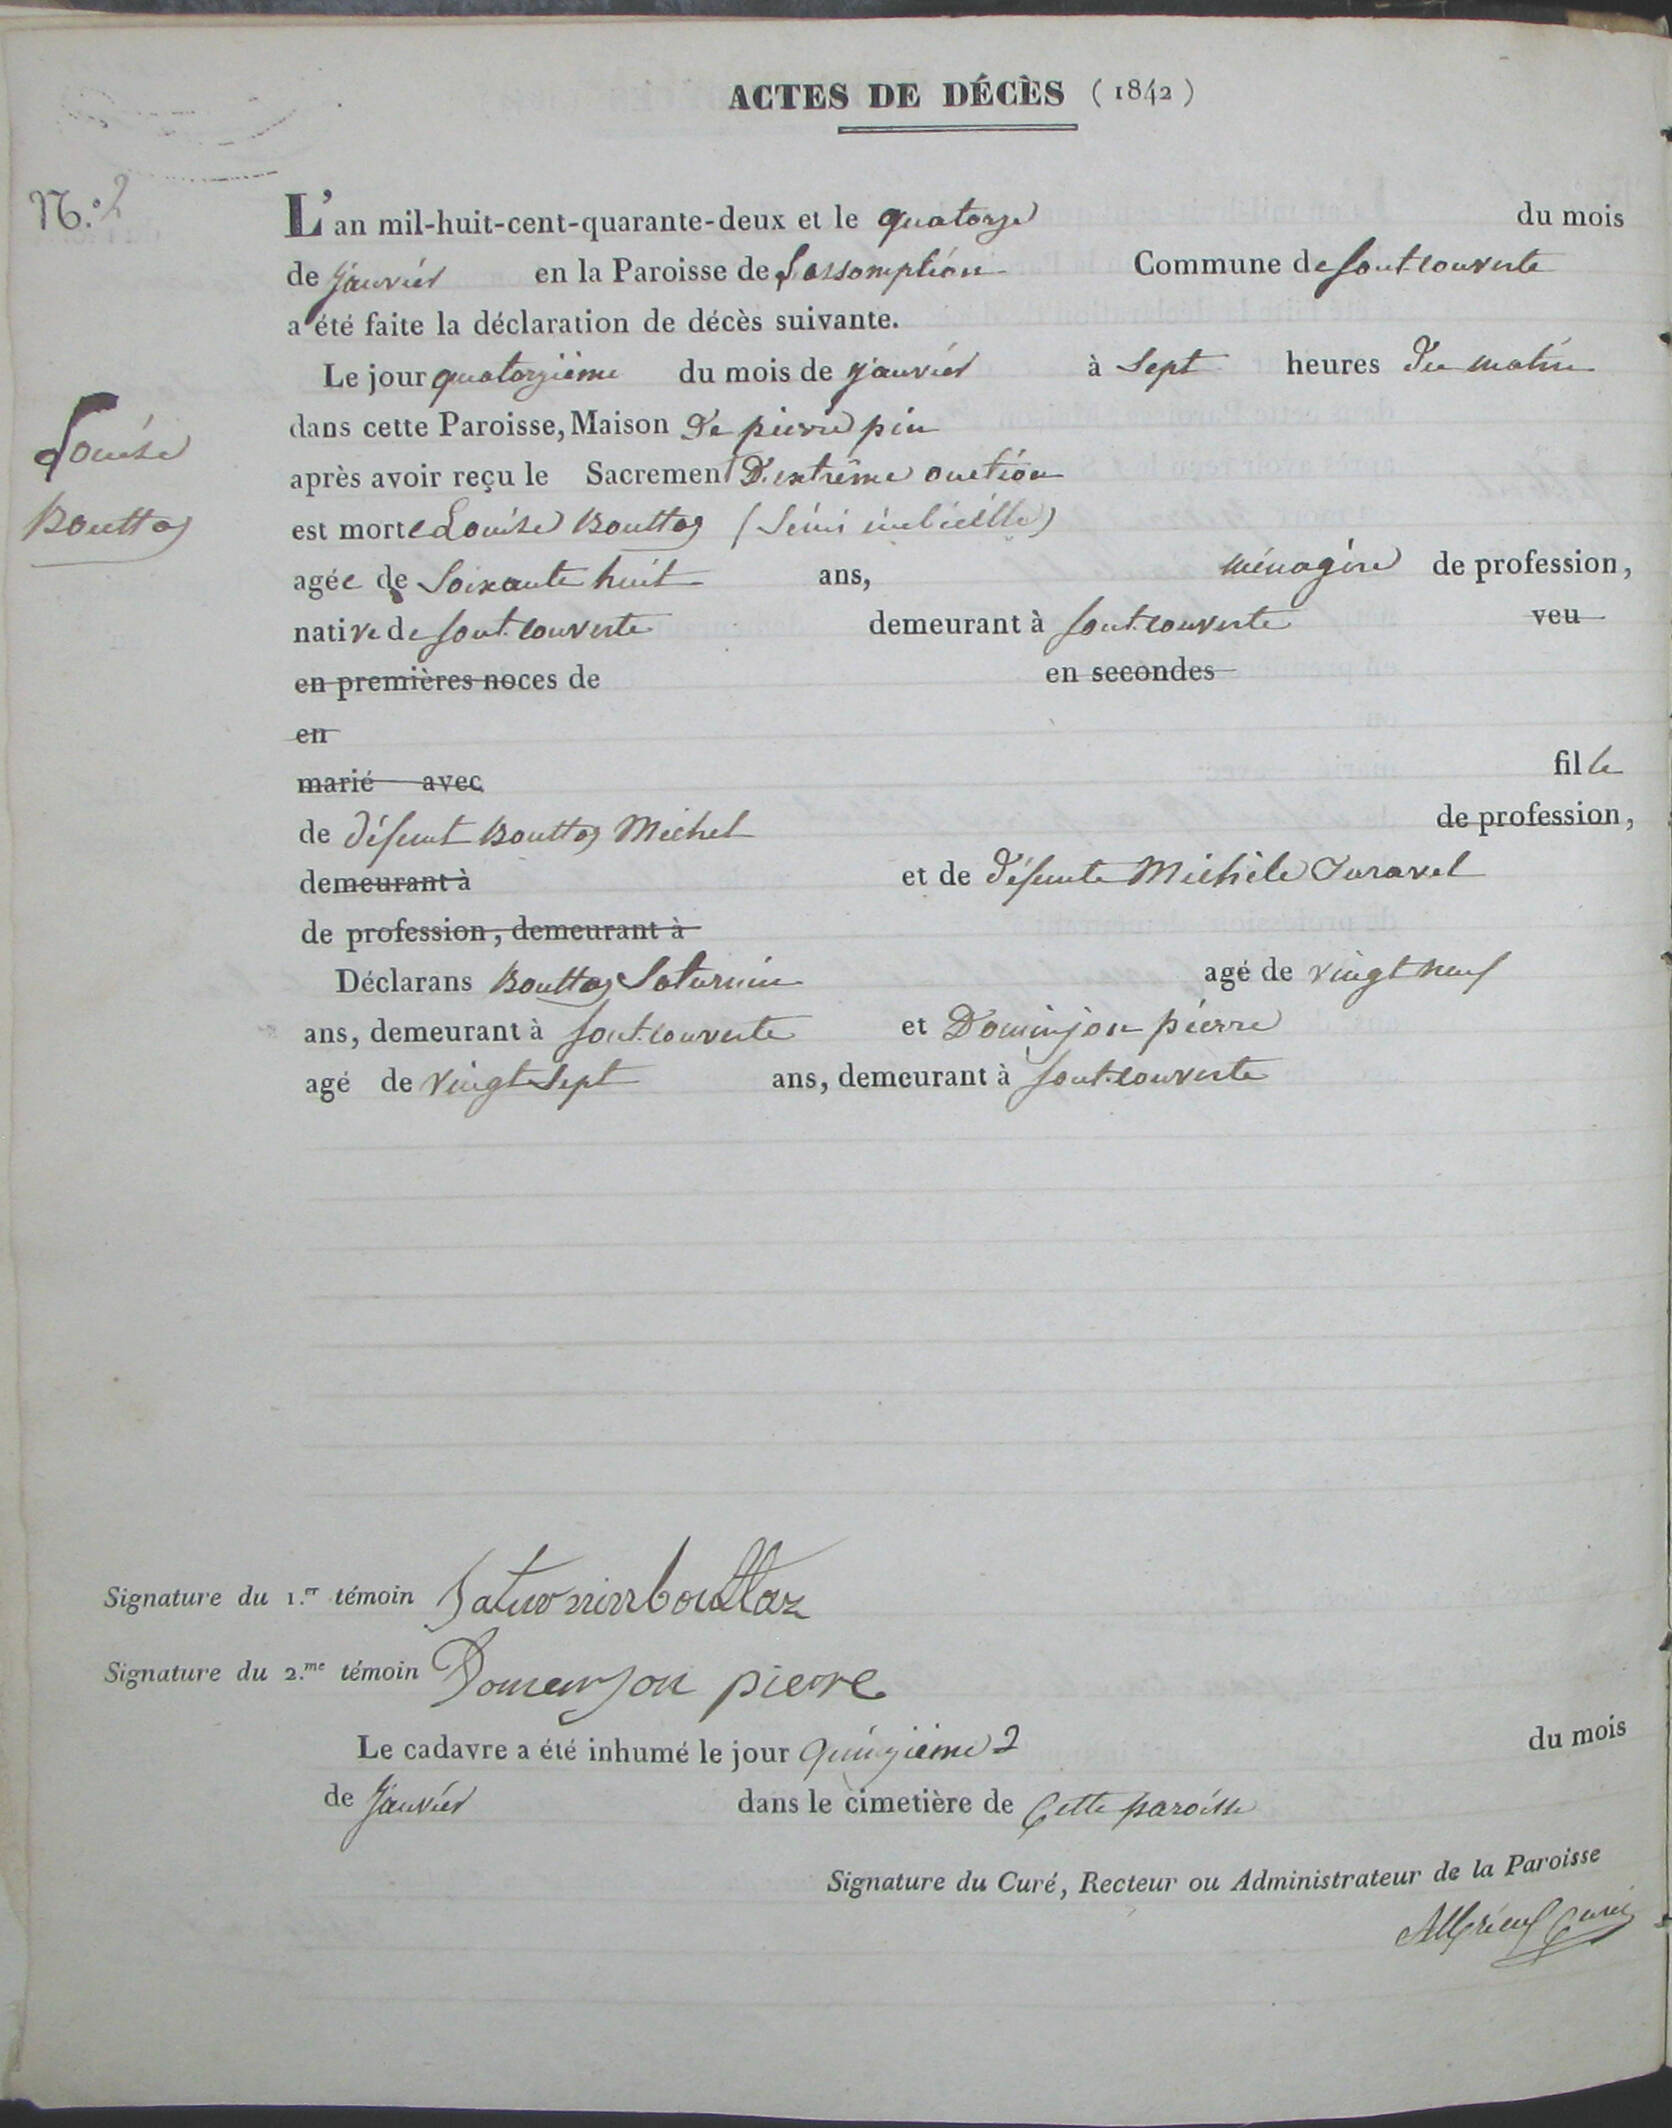 ACTES DE DÉCÈS ( 1842 )
N.º 2
L'an mil-huit-cent-quarante-deux et le quatorze du mois
de janvier en la Paroisse de Lassomption Commune de fontcouverte
a été faite la déclaration de décès suivante.
Le jour quatorzième du mois de janvier à Sept heures du matin
dans cette Paroisse, Maison De pierre pin
Louise
Bouttaz
après avoir reçu le Sacrement D'extrême onction
est morte Louise Bouttaz (Semi imbécille)
agée de Soixante huit ans, ménagère de profession,
native de font.couverte demeurant à font.couverte veu
en premières noces de en secondes
en
marié avec fille
de défunt Bouttaz Michel de profession,
demeurant à et de défunte Michèle Juravel
de profession, demeurant à
Déclarans Bouttaz Saturnin agé de vingt neuf
ans, demeurant à font.couverte et Dominjon pierre
agé de vingt Sept ans, demeurant à font.couverte
Signature du 1.er témoin Saturnin bouttaz
Signature du 2.me témoin Domenjon pierre
Le cadavre a été inhumé le jour quinzième du mois
de janvier dans le cimetière de Cette paroisse
Signature du Curé, Recteur ou Administrateur de la Paroisse
Curé